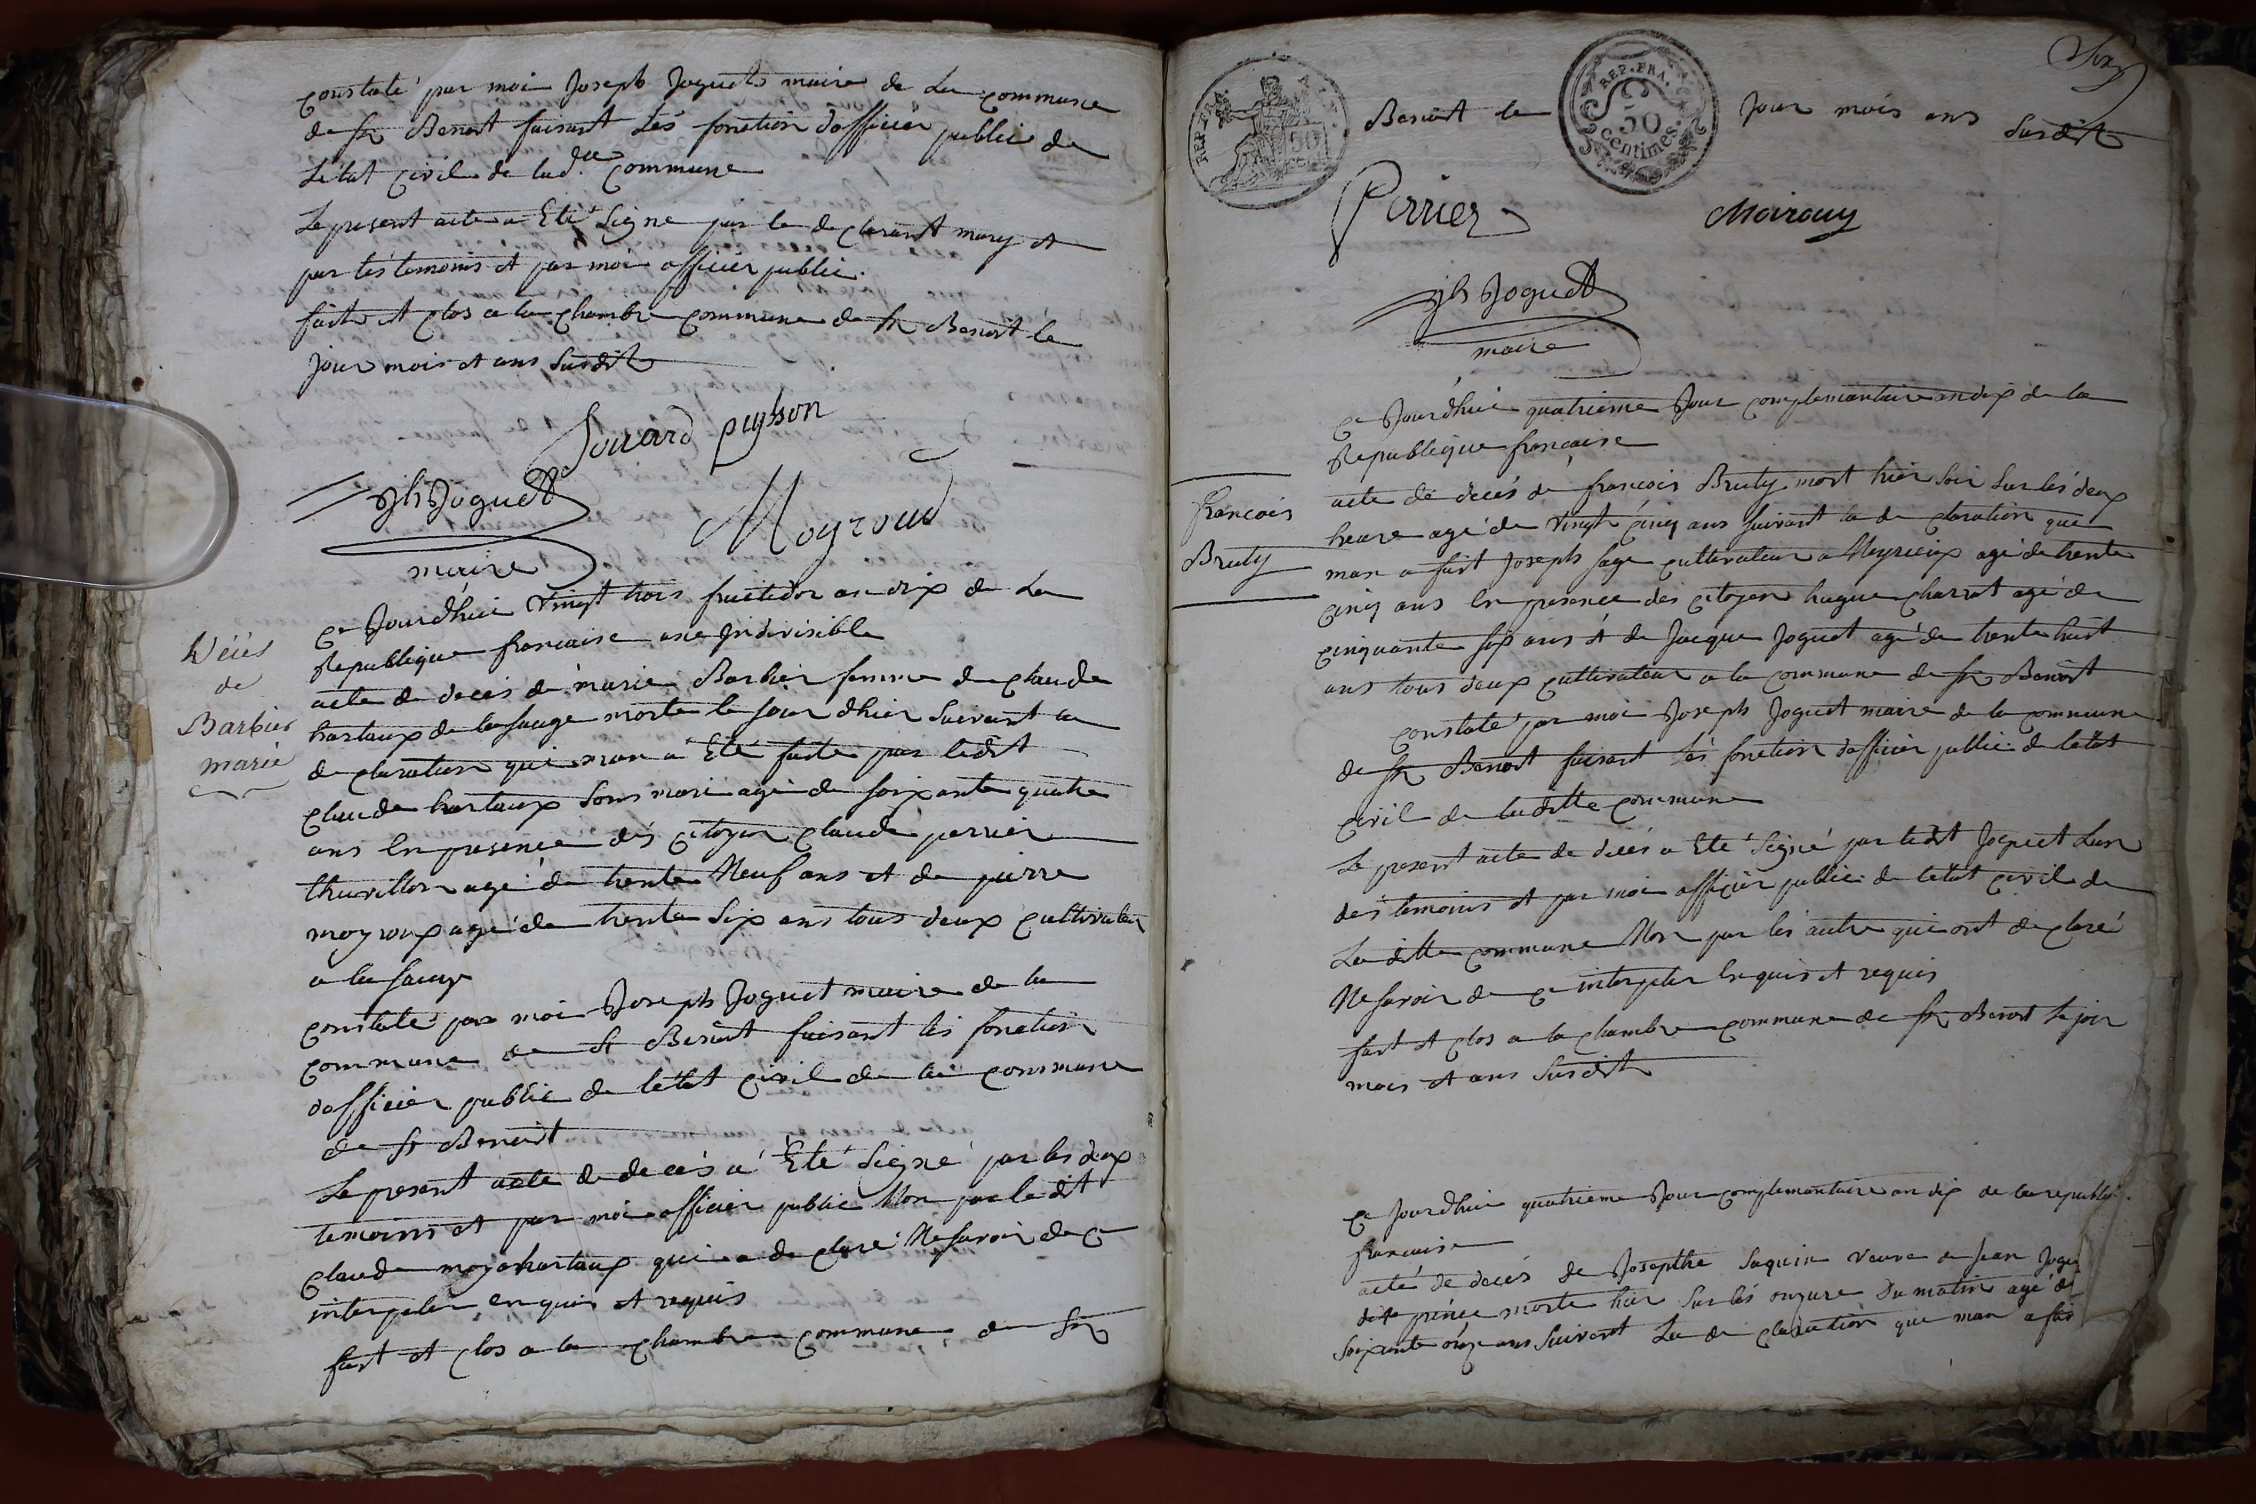 constaté par moi Joseph Joguet maire de La commune
de St Benoit faisant Les fonction dofficier public de
Letat civil de lad.te commune
Le present acte a Eté Signe par le declarant mary et
par les temoins et par moi officier public.
fait et clos a la chambre commune de St Benoit le
jour mois et ans Susdit
Souard puyson
jh Joguet
Moyroud
maire
Ce Jourdhui vingt trois fructidor an dix de La
Republique francaise une Indivisible
Décès
de
Barbier
marie
acte de deces de marie Barbier femme de claude
hartaux de la sauge morte le jour dhier Suivant la
declaration qui man a Eté faite par ledit
claude hartaux Sons mari agé de soixante quatre
ans En presence des citoyen claude perrier
thuvillon agé de trente Neuf ans et de pierre
moyroux agé de trente Six ans tous deux cultivateur
a la sauge
constaté par moi Joseph Joguet maire de la
commune de St Benoit faisant les fonction
dofficier public de letat civil de la commune
de St Benoit
Le present acte de decés a Eté Signé par les deux
temoins et par moi officier public Non par le dit
claude hartaux qui a declaré Ne savoir de ce
interpeler enquis et requis
fait et clos a la chambre commune de St
REP. FRA.
50
REP. FRA.
50
Centimes.
Benoit le jour mois ans susdit
Perrier
Moirouy
jh Joguet
maire
Ce Jourdhui quatrieme Jour complementaire an dix de la
Republique francaise
francois
Bruty
acte de decés de francois Bruty mort hier soir sur lés deux
heure agé de vingt cinq ans suivant la declaration que
man a fait Joseph sage cultivateur a Meyrieux agé de trente
cinq ans En presence des citoyen hugue charrat agé de
cinquante six ans et de Jacque Joguet agé de trente huit
ans tous deux cultivateur a la commune de St Benoit
constaté par moi Joseph Joguet maire de la commune
de St Benoit faisant les fonction dofficier public de letat
civil de laditte commune
Le present acte de decés a Eté Signé par ledit Joguet Lun
des temoins et par moi officier public de letat civil de
La ditte commune Non par les autre qui ont declaré
Ne savoir de ce interpeler Enquis et requis
fait et clos a la chambre commune de St Benoit le jour
mois et ans Susdit
Ce Jourdhui quatrieme Jour complementaire an dix de la republi
francaise
acte de decés de Josepthe Saquin veuve de Jean Jogu
dite prince morte hier Sur lés onz ure Du matin agé de
soixante onze ans Suivant La declaration que man a fai